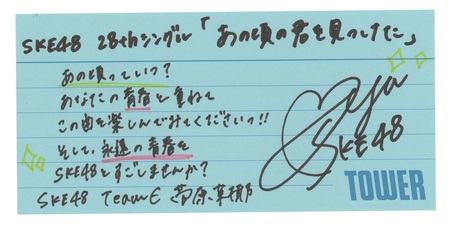 SKE48 28thシングル「あの頃の君を見つけた」
あの頃っていつ?
あなたの青春と重ねて
この曲を楽しんでみてくださいっ!!
そして、永遠の青春を
SKE48とすごしませんか?
SKE48 TeamE 菅原茉椰
Maya
SKE48
TOWER